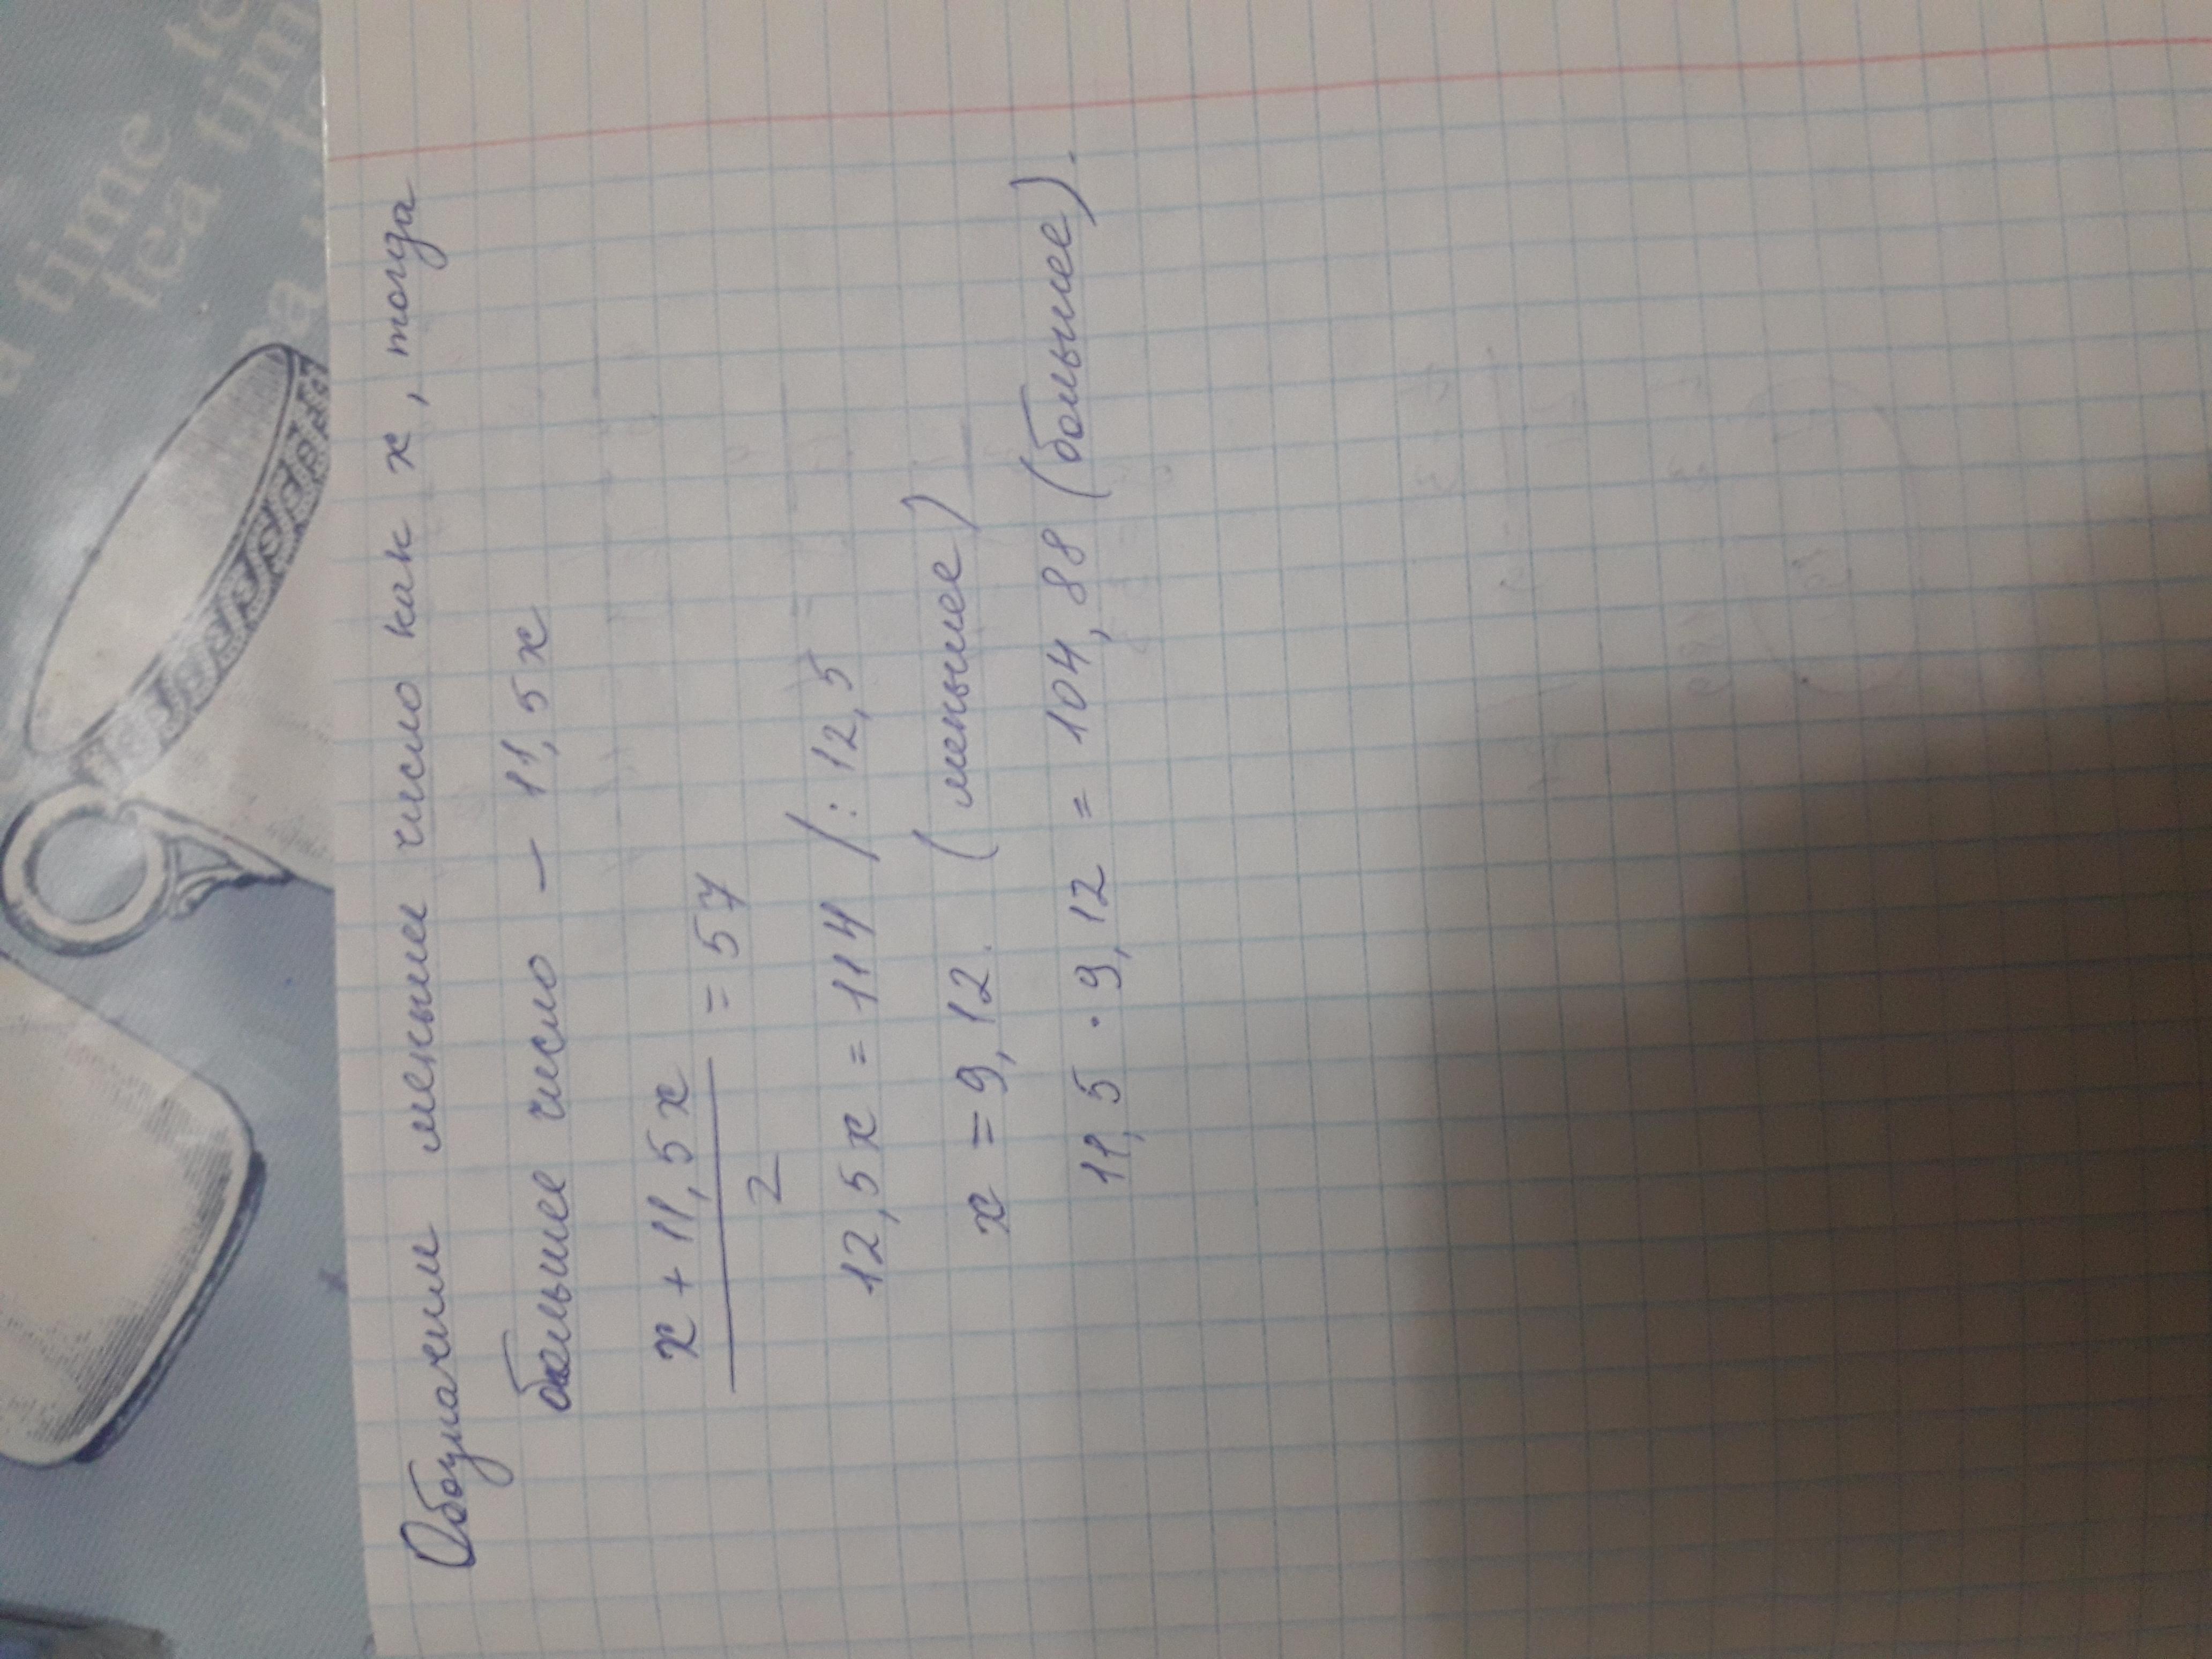 Обозначим меньшее число как x, тогда
большее число – 11,5x
x + 11,5x
2
= 57
12,5x = 114 /: 12,5
x = 9,12. (меньшее)
11,5 · 9,12 = 104,88 (большее).
time
tea
time
tea